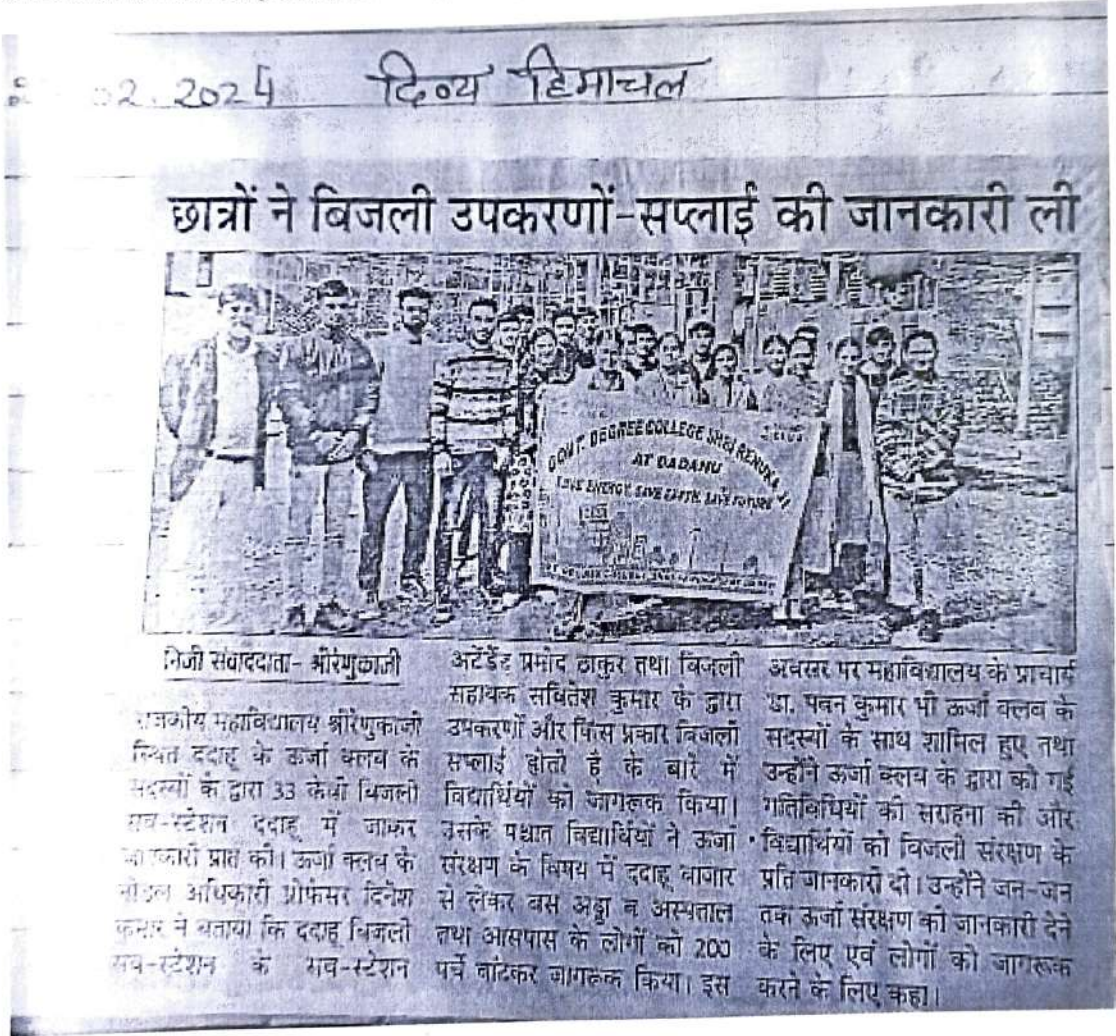 02.2024 दिव्य हिमाचल
छात्रों ने बिजली उपकरणों-सप्लाई की जानकारी ली
GOVT. DEGREE COLLEGE SHRI RENUKA JI
AT DADAHU
SAVE ENERGY, SAVE EARTH, SAVE FUTURE
निजी संवाददाता- श्रीरेणुकाजी
राजकीय महाविद्यालय श्रीरेणुकाजी
स्थित ददाहू के ऊर्जा क्लब के
सदस्यों के द्वारा 33 केवी बिजली
सब-स्टेशन ददाहू में जाकर
जानकारी प्राप्त की। ऊर्जा क्लब के
नोडल अधिकारी प्रोफेसर दिनेश
कुमार ने बताया कि ददाहू बिजली
सब-स्टेशन के सब-स्टेशन
अटेंडेंट प्रमोद ठाकुर तथा बिजली
सहायक सवितेश कुमार के द्वारा
उपकरणों और किस प्रकार बिजली
सप्लाई होती है के बारे में
विद्यार्थियों को जागरूक किया।
उसके पश्चात विद्यार्थियों ने ऊर्जा
संरक्षण के विषय में ददाहू बाजार
से लेकर बस अड्डा व अस्पताल
तथा आसपास के लोगों को 200
पर्चे बांटकर जागरूक किया। इस
अवसर पर महाविद्यालय के प्राचार्य
डा. पवन कुमार भी ऊर्जा क्लब के
सदस्यों के साथ शामिल हुए तथा
उन्होंने ऊर्जा क्लब के द्वारा की गई
गतिविधियों की सराहना की और
विद्यार्थियों को बिजली संरक्षण के
प्रति जानकारी दी। उन्होंने जन-जन
तक ऊर्जा संरक्षण की जानकारी देने
के लिए एवं लोगों को जागरूक
करने के लिए कहा।